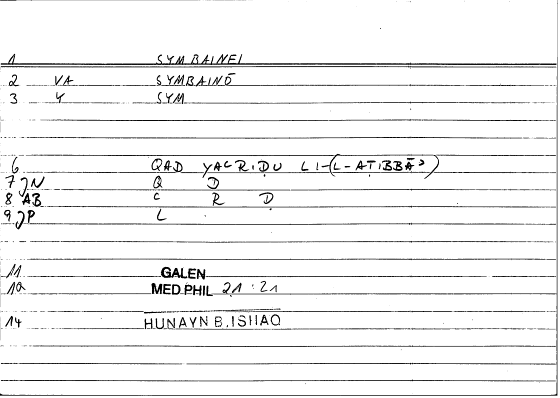 1 SYMBAINEI
2 VA SYMBAINŌ
3 Y SYM
6 QAD YAᶜRIḌU LI-(L-AṬIBBĀʾ)
7 JN Q D
8 AB ᶜ R Ḍ
9 JP L
11 GALEN
12 MED PHIL 21 : 21
14 HUNAYN B. ISHAQ